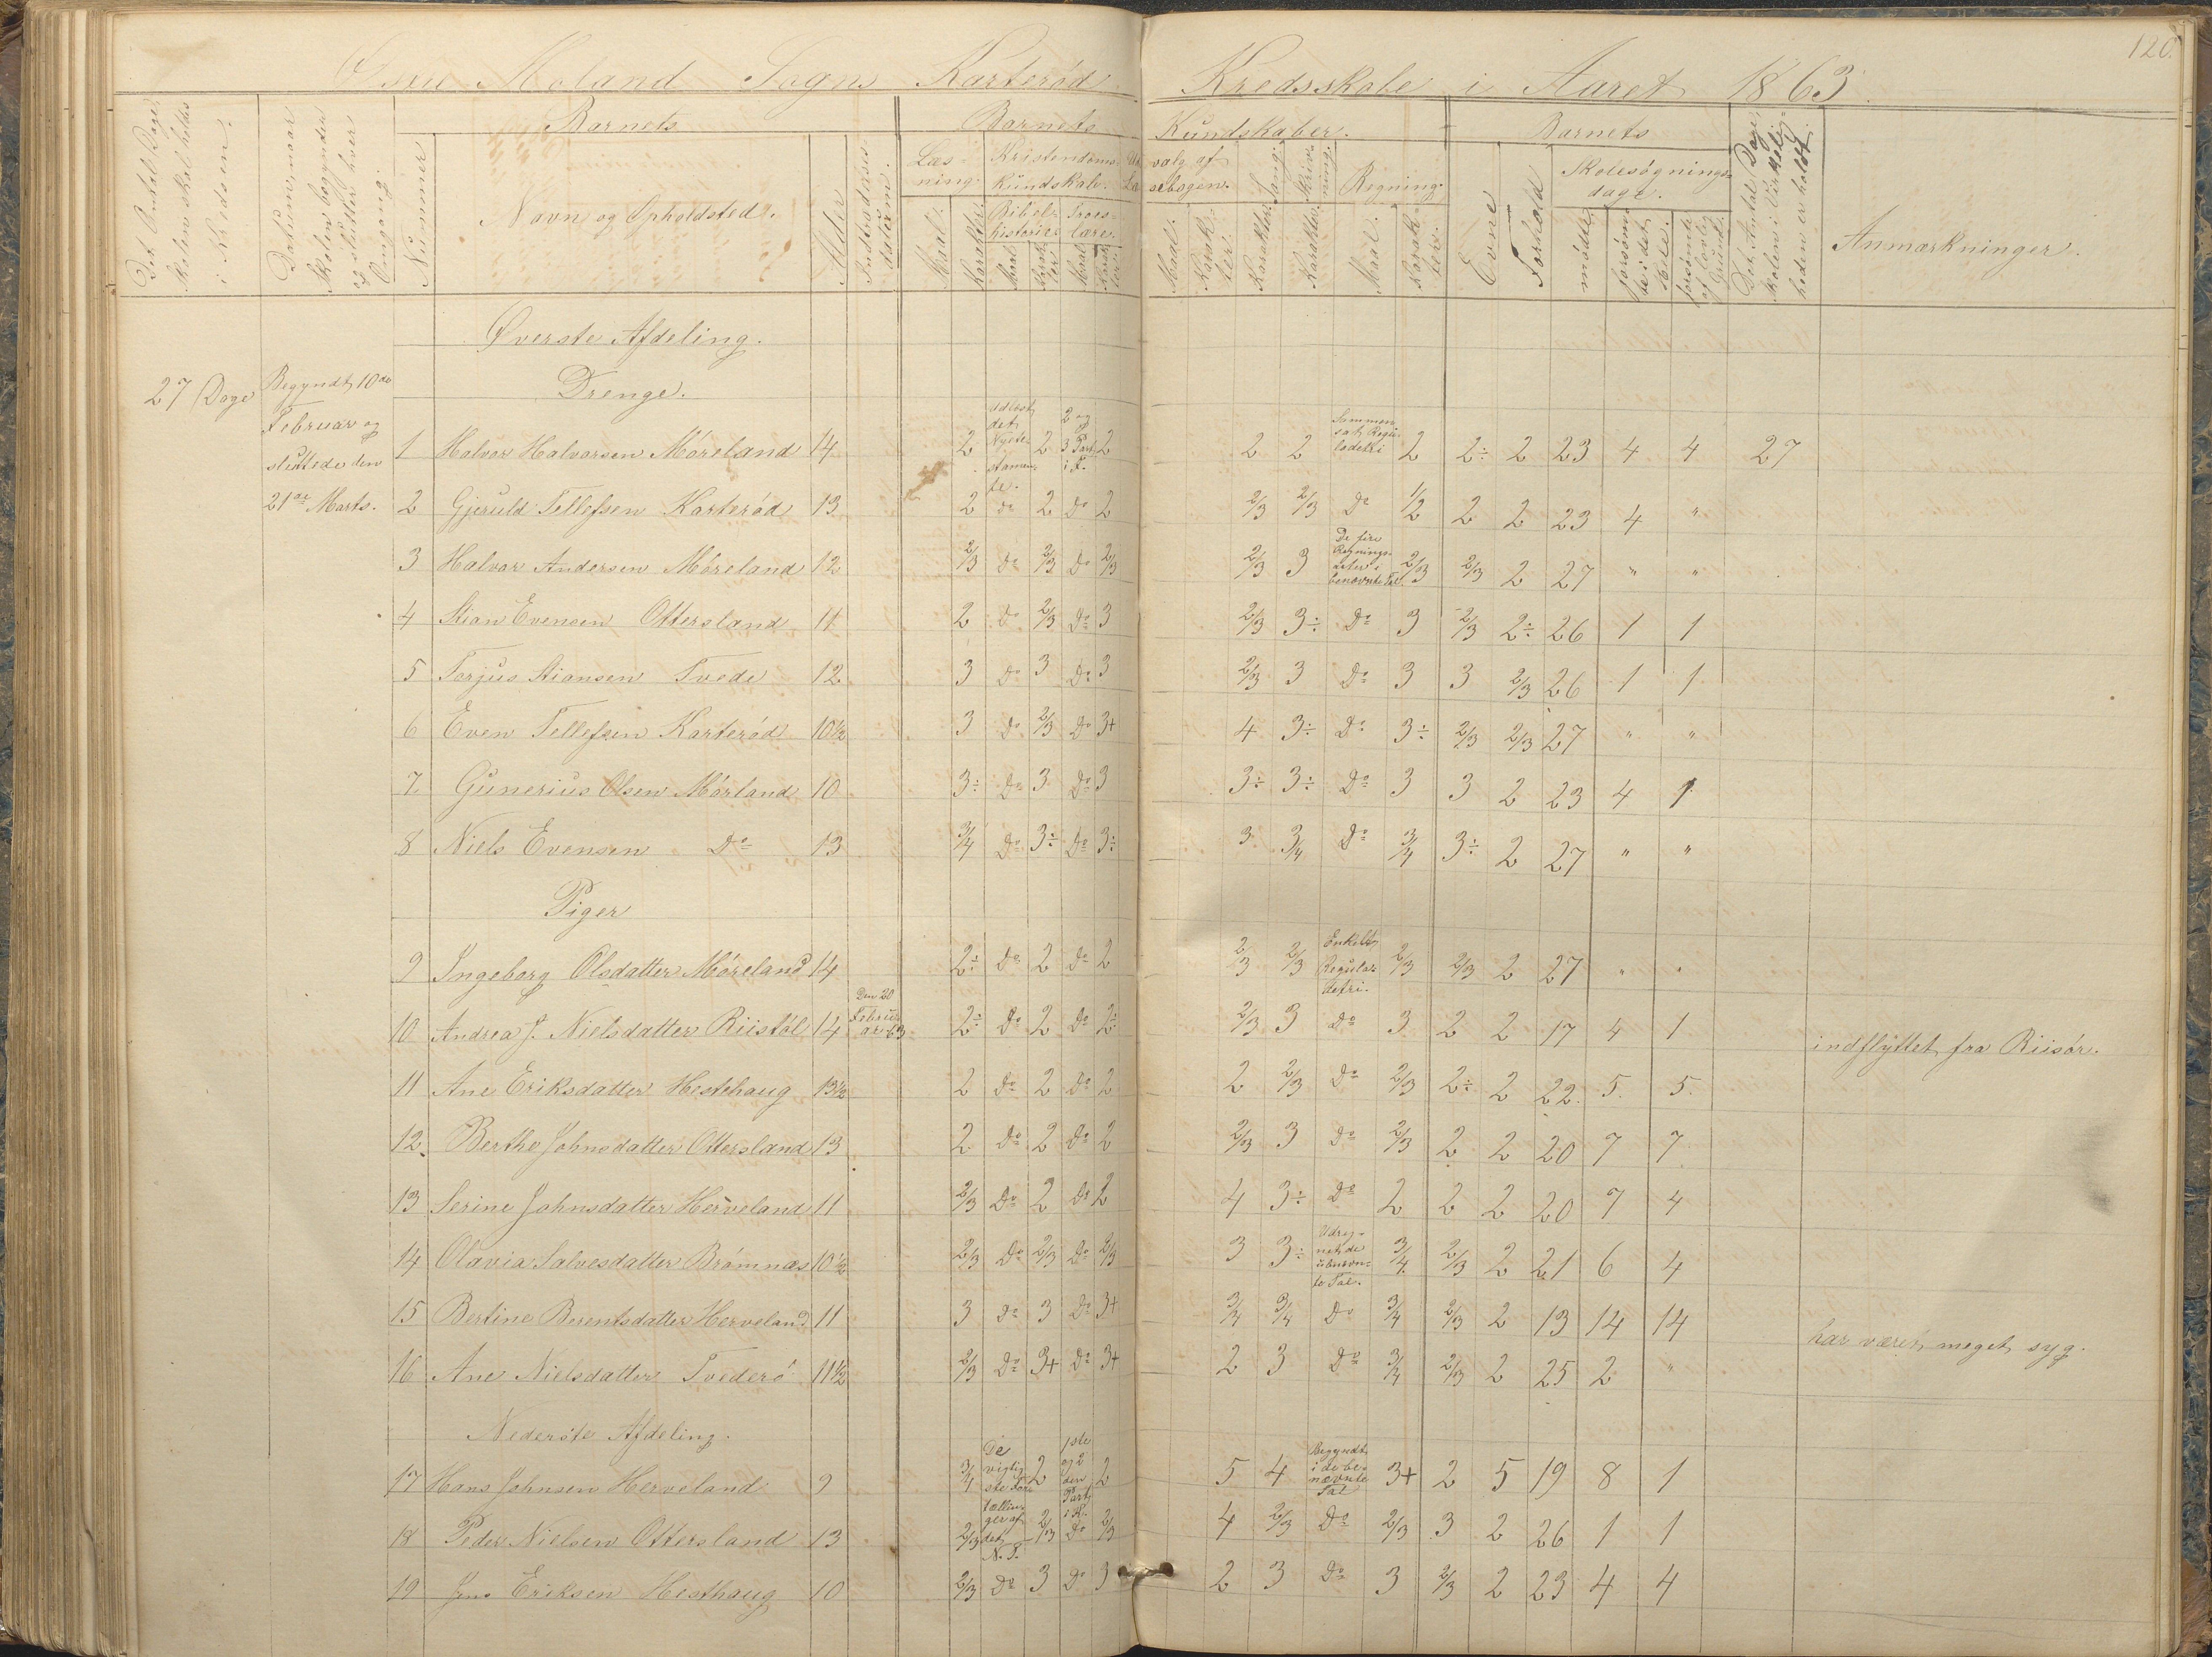 120.
Østre Moland Sogns Karterød Kredsskole i Aaret 1863.
Det Antal Dage, Skolen skal holdes i Kredsen.
Datum, naar Skolen begynder og slutter hver Omgang.
Nummer
Barnets
Navn og Opholdsted.
Alder
Indtrædelses-datum.
Barnets Kundskaber.
Læs-ning. Kristendoms-kundskab. Ud-valg af Læsebogen. Sang. Skriv-ning. Regning.
Bibel-historie Troes-lære.
Maal. Karakter. Maal. Karakter Maal. Karakter. Maal. Karak-ter. Karakter. Karakter. Maal. Karak-ter.
Barnets
Evne Forhold Skolesøgnings-dage.
mødte. forsømte i det Hele. forsømte af lovlig Grund.
Det Antal Dage, Skolen i Virkelig-heden er holdt.
Anmærkninger.
Øverste Afdeling.
27 Dage
Begyndt 10de Februar og sluttede den 21de Marts.
Drenge.
1 Halvor Halvorsen Møreland 14 2 Udlæst det Nyete-stamen-te. 2 2 og 3 Part i F. 2 2 2 Sammen-sat Regu-ladetri 2 2÷ 2 23 4 4 27
2 Gjeruld Tellefsen Karterød 13 2 do 2 do 2 2/3 2/3 do 1/2 2 2 23 4 "
3 Halvor Andersen Møreland 12 2/3 do 2/3 do 2/3 2/3 3 De fire Regnings-arter i benævnte Tal. 2/3 2/3 2 27 " "
4 Stian Evensen Ottersland 11 2 do 2/3 do 3 2/3 3÷ do 3 2/3 2÷ 26 1 1
5 Torjus Stiansen Tvede 12 3 do 3 do 3 2/3 3 do 3 3 2/3 26 1 1
6 Even Tellefsen Karterød 10½ 3 do 2/3 do 3+ 4 3÷ do 3÷ 2/3 2/3 27 " "
7 Gunerius Olsen Mørland 10 3÷ do 3 do 3 3÷ 3÷ do 3 3 2 23 4 1
8 Niels Evensen Do 13 3/4 do 3÷ do 3÷ 3 3/4 do 3/4 3÷ 2 27 " "
Piger
9 Ingeborg Olsdatter Møreland 14 2÷ do 2 do 2 2/3 2/3 Enkelt Regula-detri. 2/3 2/3 2 27 " "
10 Andrea J. Nielsdatter Riistøl 14 Den 20 Febru-ar 63 2÷ do 2 do 2÷ 2/3 3 do 3 2 2 17 4 1 indflyttet fra Riisør.
11 Ane Eriksdatter Hestehaug 13½ 2 do 2 do 2 2 2/3 do 2/3 2÷ 2 22. 5. 5.
12. Berthe Johnsdatter Ottersland 13 2 do 2 do 2 2/3 3 do 2/3 2 2 20 7 7
13 Serine Johnsdatter Herveland 11 2/3 do 2 do 2 4 3÷ do 2 2 2 20 7 4
14 Olavia Salvesdatter Brømnæs 10½ 2/3 do 2/3 do 2/3 3 3÷ Udreg-net de ubenevn-te Tal. 3/4 2/3 2 21 6 4
15 Bertine Berentsdatter Herveland 11 3 do 3 do 3+ 3/4 3/4 do 3/4 2/3 2 13 14 14 har været meget syg.
16 Ane Nielsdatter Tvederø 11½ 2/3 do 3+ do 3+ 2 3 do 3/4 2/3 2 25 2 "
Nederste Afdeling.
17 Hans Johnsen Herveland 9 3/4 De vigtig-ste For-tællin-ger af det N. T. 2 1ste og 2 den Part i F. 2 5 4 Begyndt i de be-nævnte Tal 3+ 2 5 19 8 1
18 Peder Nielsen Ottersland 13 2/3 2/3 do 2/3 4 2/3 do 2/3 3 2 26 1 1
19 Jens Eriksen Hesthaug 10 2/3 do 3 do 3 2 3 do 3 2/3 2 23 4 4